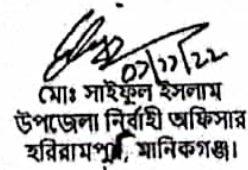 ০৭/১১/২২
মোঃ সাইফুল ইসলাম
উপজেলা নির্বাহী অফিসার
হরিরামপুর, মানিকগঞ্জ।